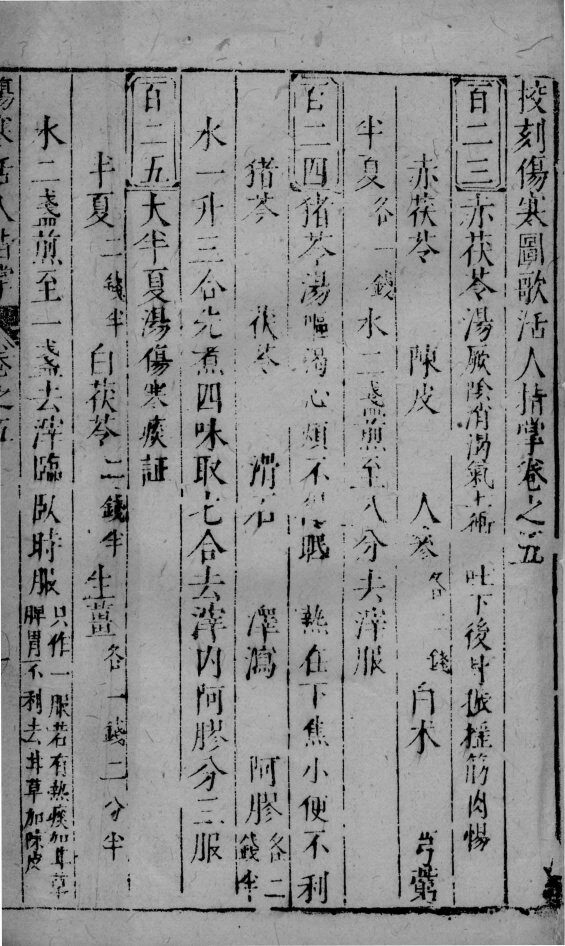 挍刻傷寒圖歌活人指掌卷之五
百二三 赤茯苓湯 厥陰消渴氣上衝 吐下後身振搖筋肉惕
赤茯苓 陳皮 人參各一錢 白朮 芎藭
半夏各一錢 水二盞煎至八分去滓服
百二四 猪苓湯 嘔渴心煩不得眠 熱在下焦小便不利
猪苓 茯苓 滑石 澤瀉 阿膠各二錢半
水一升三合先煮四味取七合去滓内阿膠分三服
百二五 大半夏湯 傷寒痰証
半夏二錢半 白茯苓二錢半 生薑各一錢二分半
水二盞煎至一盞去滓臨臥時服 只作一服若有熱痰加甘草
脾胃不利去甘草加陳皮
傷寒活人指掌 卷之五